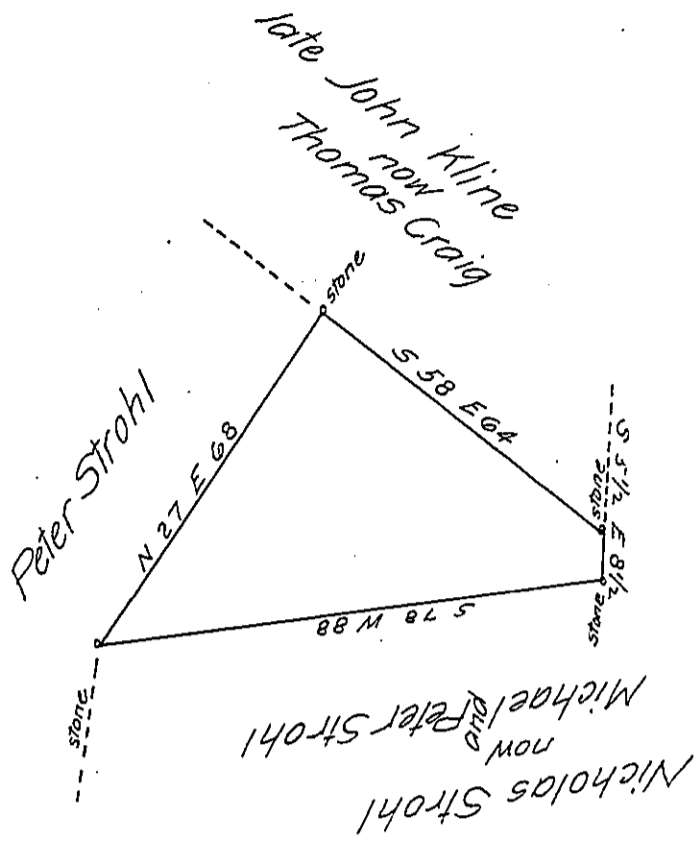 late John Kline
now
Thomas Craig
stone
S 58 E 64
Peter Strohl
N 27 E 68
stone
S 5 1/2 E 8 1/2
stone
S 78 W 88
stone
Nicholas Strohl
now
Michael and Peter Strohl